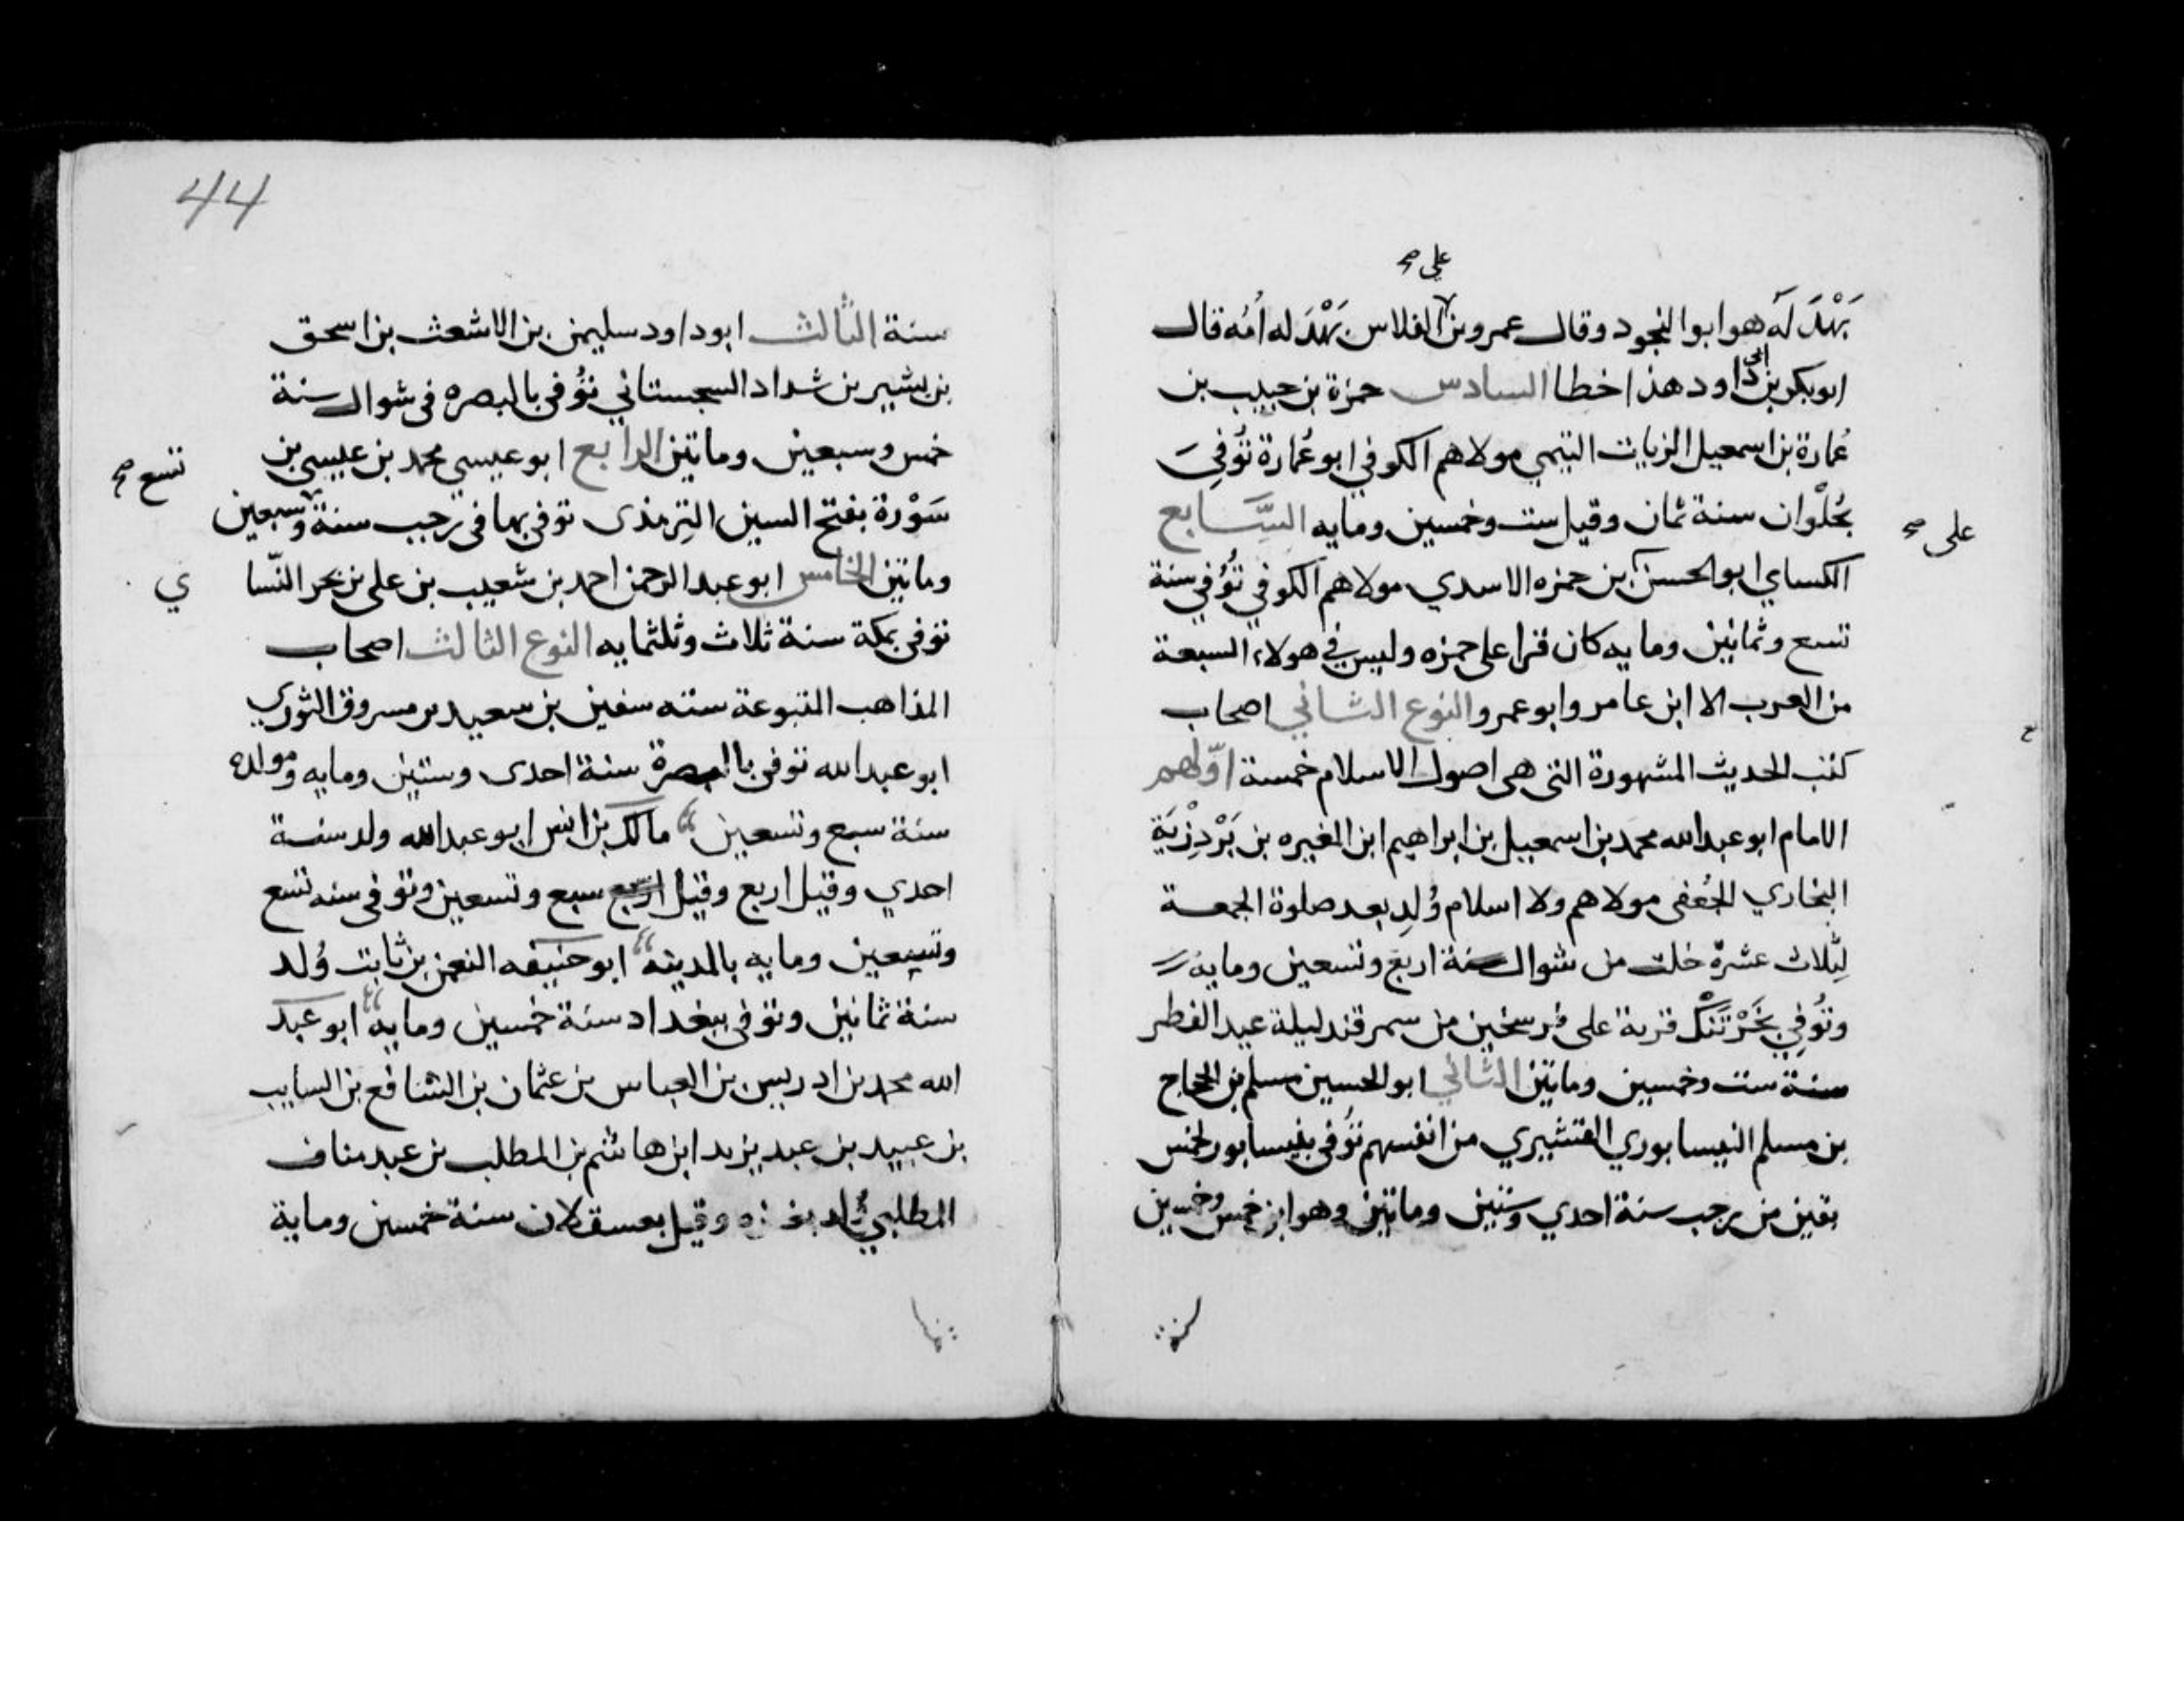 على صح
بَهْدَلَه هو ابوا النجود وقال عمرو بن الفلاس بَهْدَله اُمّه قال
ابو بكر بن ابى داود هذا خطا السادس حمزة بن حبيب بن
عُمارة بن اسمعيل الزيات التيمي مولاهم الكوفي ابو عُمارة تُوُفِيَ
بحُلْوان سنة ثمان وقيل ست وخمسين ومايه السَّابع
على صح
الكساي ابو الحسن بن حمزه الاسدي مولاهم الكوفي تُوُفي سنة
تسع وثمانين ومايه كان قرا على حمزه وليس في هولاء السبعة
من العرب الا ابن عامر وابو عمرو النوع الثاني اصحاب
كتب الحديث المشهورة التى هى اصول الاسلام خمسة اوّلهم
الامام ابو عبدالله محمد بن اسمعيل بن ابراهيم ابن المغيره بن بَرْدِزْبَة
البخاري الجُعفى مولاهم ولا اسلام وُلِد بعد صلوة الجمعة
لِثلاث عشرة خلت من شوال سنة اربع وتسعين ومايه
وتُوُفِي بخَرْتَنْك قرية على فرسخين من سمرقند ليلة عيد الفطر
سنة ست وخمسين وماتين الثاني ابو الحسين مسلم بن الحجاج
بن مسلم النيسابوري القشيري من انفسهم تُوُفى بنيسابور لخمس
بقين من رجب سنة احدي وستين وماتين وهو ابن خمس وخمسين
44
سنة الثالث ابو داود سليمن بن الاشعث بن اسحق
بن بشير بن شداد السجستاني تُوُفى بالبصره فى شوال سنة
خمس وسبعين وماتين الرابع ابو عيسي محمد بن عيسي بن
تسع صح
سَوْرة بفتح السين التِرمذى توفى بها فى رجب سنة وسبعين
وماتين الخامس ابو عبد الرحمن احمد بن شعيب بن على بن بحر النّسا
ي
توفى بمكة سنة ثلاث وثلثمايه النوع الثالث اصحاب
المذاهب المتبوعة سته سفين بن سعيد بن مسروق الثوري
ابو عبدالله توفى بالبصرة سنة احدى وستين ومايه ومولده
سنة سبع وتسعين مالك بن انس ابو عبدالله ولد سنة
احدي وقيل اربع وقيل اربع سبع وتسعين وتوفى سنه تسع
وتسعين ومايه بالمدينه ابو حنيفه النعمن بن ثابت وُلد
سنة ثمانين وتوفى ببغداد سنة خمسين ومايه ابو عبد
الله محمد بن ادريس بن العباس بن عثمان بن الشافع بن السايب
بن عبيد بن عبد يزيد ابن هاشم بن المطلب بن عبد مناف
المطلبي وُلد بغزه وقيل بعسقلان سنة خمسين وماية